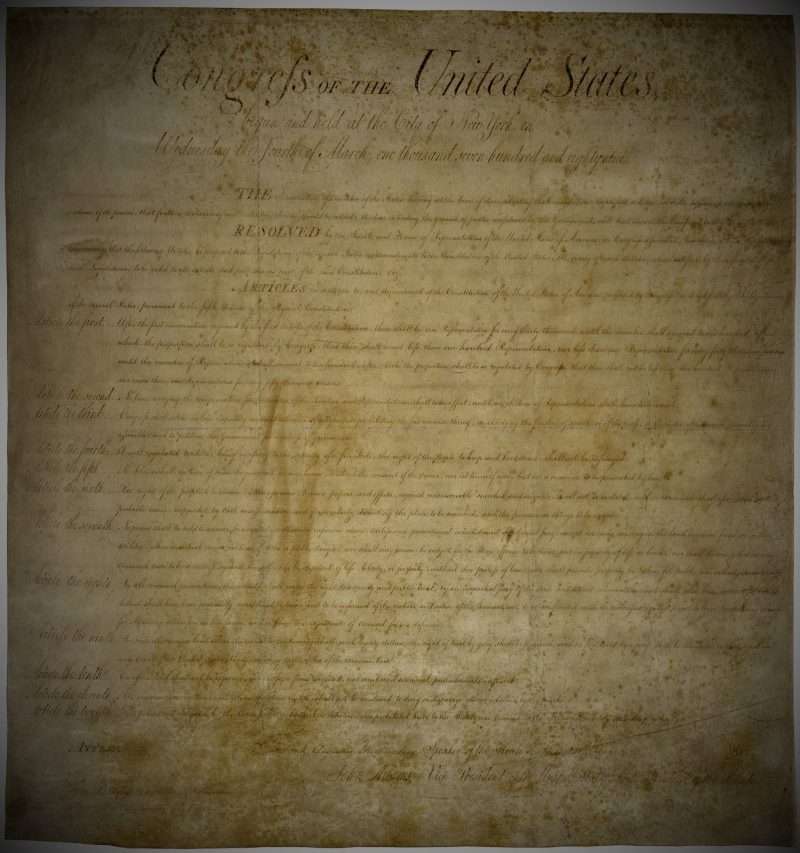 Congreſs OF THE United States,
begun and held at the City of New-York, on
Wednesday the fourth of March, one thousand seven hundred and eighty nine.
THE of the States, having at the time of their adopting the Constitution, expressed a desire
of its powers, that further declaratory and restrictive clauses should be added: And as extending the ground of public confidence in the Government
RESOLVED by the Senate and House of Representatives of the United States of America, in Congress assembled, two thirds of
concurring, that the following Articles be proposed to the Legislatures of the several States, as amendments to the Constitution of the United States
said Legislatures, to be valid to all intents and purposes, as part of the said Constitution,
ARTICLES in addition to, and Amendment of the Constitution of the United States of America, proposed by Congress, and ratified by the Legislatures
of the several States, pursuant to the fifth Article of the original Constitution.
Article the first. After the first enumeration required by the first Article of the Constitution, there shall be one Representative for every thirty thousand, until the number shall amount to one hundred, after
which, the proportion shall be so regulated by Congress, that there shall be not less than one hundred Representatives, nor less than one Representative for every forty thousand persons,
until the number of Representatives shall amount to two hundred, after which the proportion shall be so regulated by Congress, that there shall not be less than two hundred Representatives,
nor more than one Representative for every fifty thousand persons.
Article the second. No law, varying the compensation for the services of the Senators and Representatives, shall take effect, until an election of Representatives shall have intervened.
Article the third. Congress shall make no law respecting an establishment of religion, or prohibiting the free exercise thereof; or abridging the freedom of speech, or of the press; or the right of the people peaceably to
assemble, and to petition the Government for a redress of grievances.
Article the fourth. A well regulated militia, being necessary to the security of a free State, the right of the people to keep and bear arms, shall not be infringed.
Article the fifth. No Soldier shall, in time of peace be quartered in any house, without the consent of the owner, nor in time of war, but in a manner to be prescribed by law.
Article the sixth. The right of the people to be secure in their persons, houses, papers, and effects, against unreasonable searches and seizures, shall not be violated, and no warrants shall issue, but upon
probable cause, supported by oath or affirmation, and particularly describing the place to be searched, and the persons or things to be seized.
Article the seventh. No person shall be held to answer for a capital, or otherwise infamous crime, unless on a presentment or indictment of a Grand Jury, except in cases arising in the land or naval forces, or in the
militia, when in actual service in time of War or public danger; nor shall any person be subject for the same offence to be twice put in jeopardy of life or limb; nor shall be compelled in any
criminal case to be a witness against himself, nor be deprived of life, liberty, or property, without due process of law; nor shall private property be taken for public use without just compensation.
Article the eighth. In all criminal prosecutions, the accused shall enjoy the right to a speedy and public trial, by an impartial jury of the State and district wherein the crime shall have been committed, which
district shall have been previously ascertained by law, and to be informed of the nature and cause of the accusation; to be confronted with the witnesses against him; to have compulsory process
for obtaining witnesses in his favor, and to have the assistance of counsel for his defence.
Article the ninth. In suits at common law, where the value in controversy shall exceed twenty dollars, the right of trial by jury shall be preserved, and no fact tried by a jury, shall be otherwise re-examined
in any Court of the United States, than according to the rules of the common law.
Article the tenth. Excessive bail shall not be required, nor excessive fines imposed, nor cruel and unusual punishments inflicted.
Article the eleventh. The enumeration in the Constitution, of certain rights, shall not be construed to deny or disparage others retained by the people.
Article the twelfth. The powers not delegated to the United States by the Constitution, nor prohibited by it to the States, are reserved to the States respectively, or to the people.
ATTEST,
Frederick Augustus Muhlenberg Speaker of the House of Representatives
John Adams, Vice President of the United States, and President of the Senate